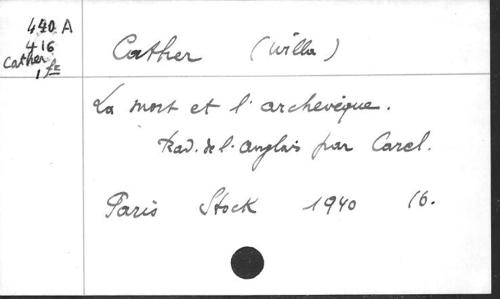 440 A
416
Cather
1 fr
Cather (Willa)
La mort et l'archevêque.
Trad. de l'anglais par Carel.
Paris Stock 1940 16.